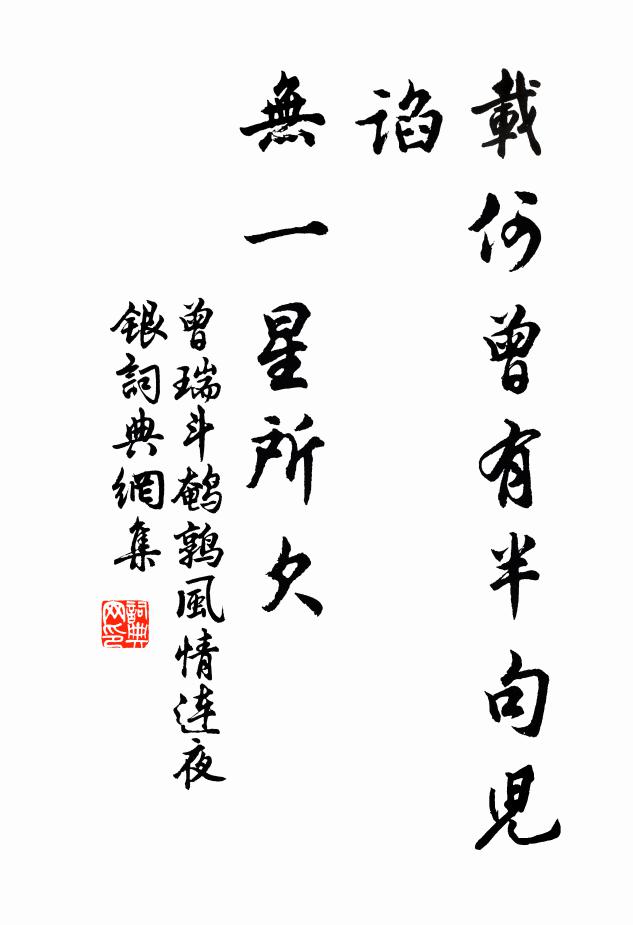 載何曾有半句兒
諂
無一星所欠
曾瑞斗鹌鹑風情连夜
銀詞典網集
詞典
网印